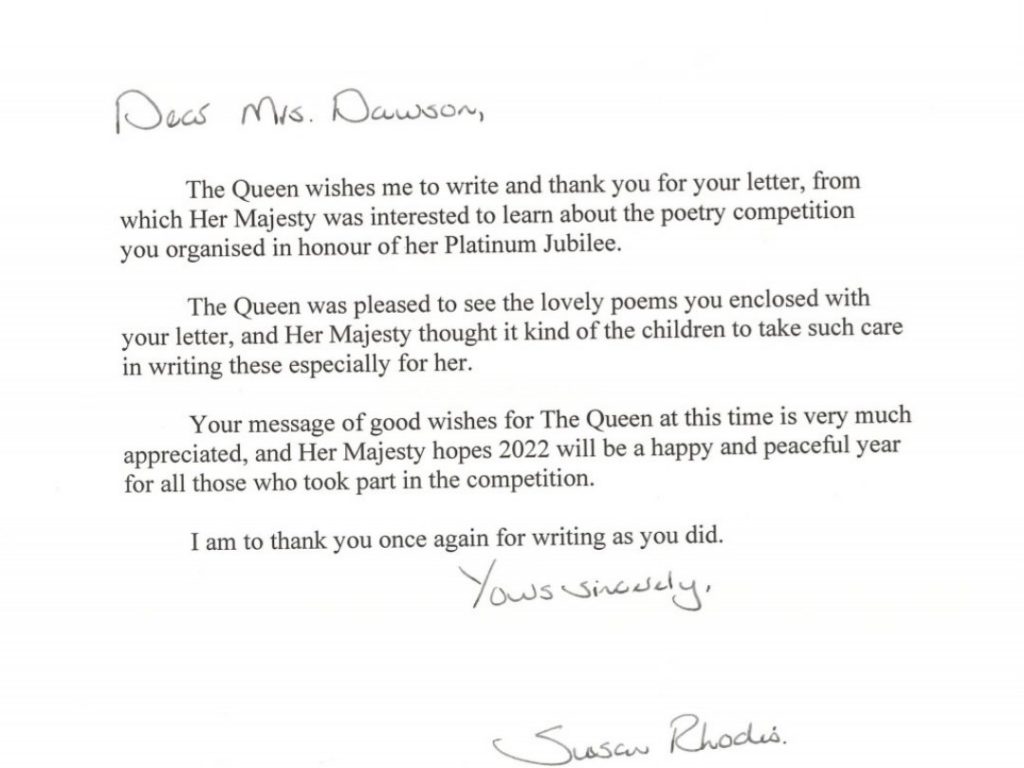 Dear Mrs. Dawson,
The Queen wishes me to write and thank you for your letter, from
which Her Majesty was interested to learn about the poetry competition
you organised in honour of her Platinum Jubilee.
The Queen was pleased to see the lovely poems you enclosed with
your letter, and Her Majesty thought it kind of the children to take such care
in writing these especially for her.
Your message of good wishes for The Queen at this time is very much
appreciated, and Her Majesty hopes 2022 will be a happy and peaceful year
for all those who took part in the competition.
I am to thank you once again for writing as you did.
Yours sincerely,
Susan Rhodes.